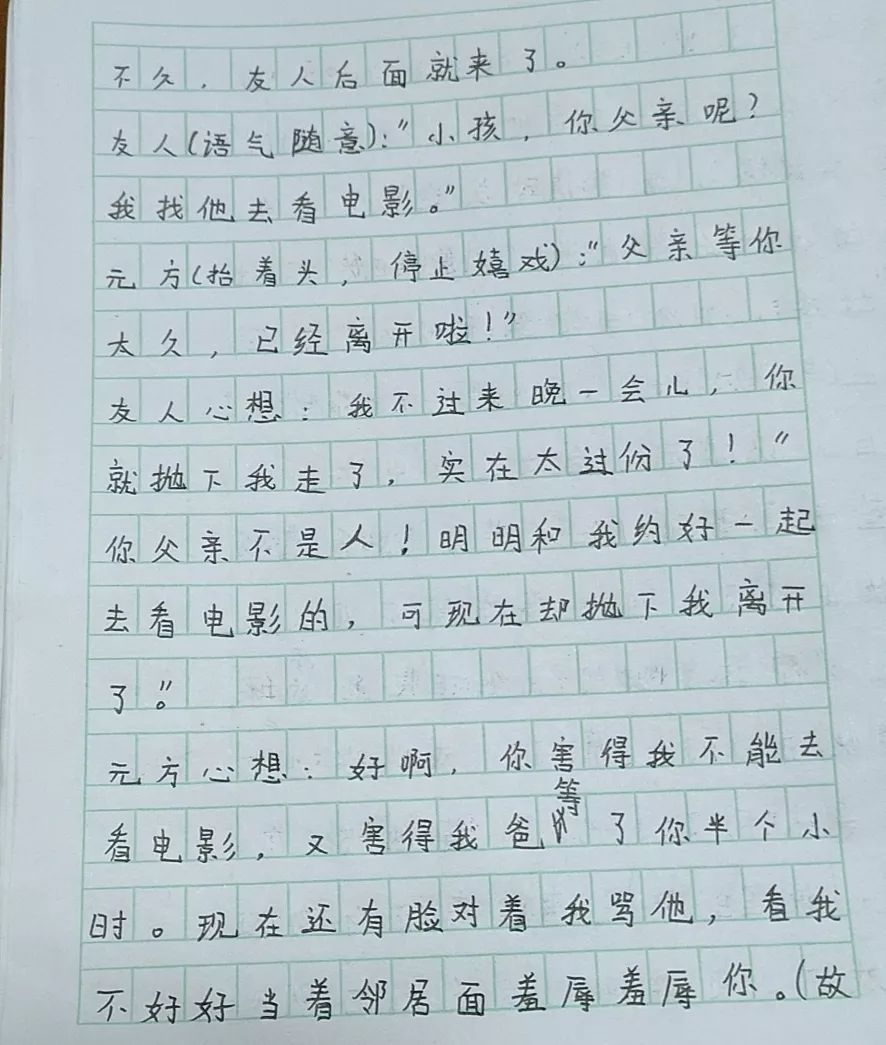 不久，友人后面就来了。
友人(语气随意)："小孩，你父亲呢？
我找他去看电影。"
元方(抬着头，停止嬉戏)："父亲等你
太久，已经离开啦！"
友人心想：我不过来晚一会儿，你
就抛下我走了，实在太过份了！"
你父亲不是人！明明和我约好一起
去看电影的，可现在却抛下我离开
了。"
元方心想：好啊，你害得我不能去
看电影，又害得我爸等了你半个小
时。现在还有脸对着我骂他，看我
不好好当着邻居面羞辱羞辱你。(故